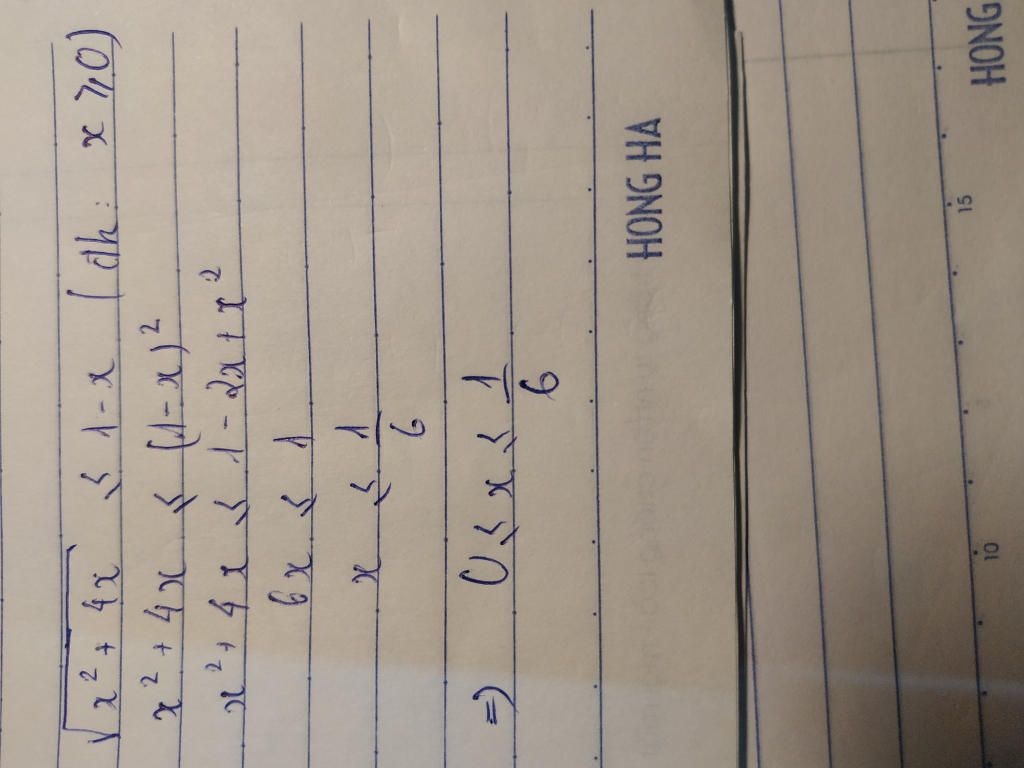 √(x² + 4x) ≤ 1 - x (đk: x ⩾ 0)
x² + 4x ≤ (1 - x)²
x² + 4x ≤ 1 - 2x + x²
6x ≤ 1
x ≤ 1/6
=) 0 ≤ x ≤ 1/6
HONG HA
10
15
HONG